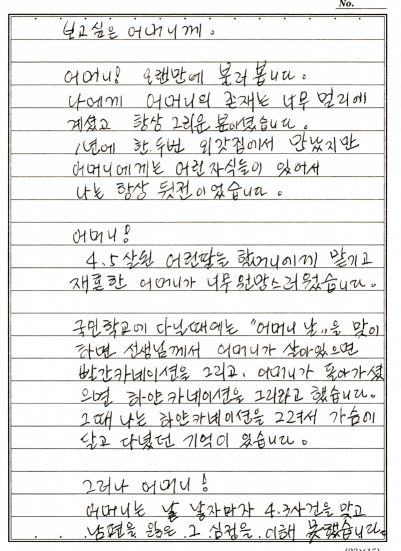 No.
보고싶은 어머니께.
어머니! 오랜만에 불러 봅니다.
나에게 어머니의 존재는 너무 멀리에
계셨고 항상 그리운 분이셨습니다.
1년에 한 두번 외갓집에서 만났지만
어머니에게는 어린 자식들이 있어서
나는 항상 뒷전이었습니다.
어머니!
4.5살된 어린딸을 할머니에게 맡기고
재혼한 어머니가 너무 원망스러웠습니다.
국민학교에 다닐때에는 "어머니 날"을 맞이
하면 선생님께서 어머니가 살아있으면
빨간카네이션을 그리고, 어머니가 돌아가셨
으면 하얀 카네이션을 그리라고 했습니다.
그때 나는 하얀카네이션을 그려서 가슴에
달고 다녔던 기억이 있습니다.
그러나 어머니!
어머니는 날 낳자마자 4.3사건을 맞고
남편을 잃은 그 심정을 이해 못했습니다.